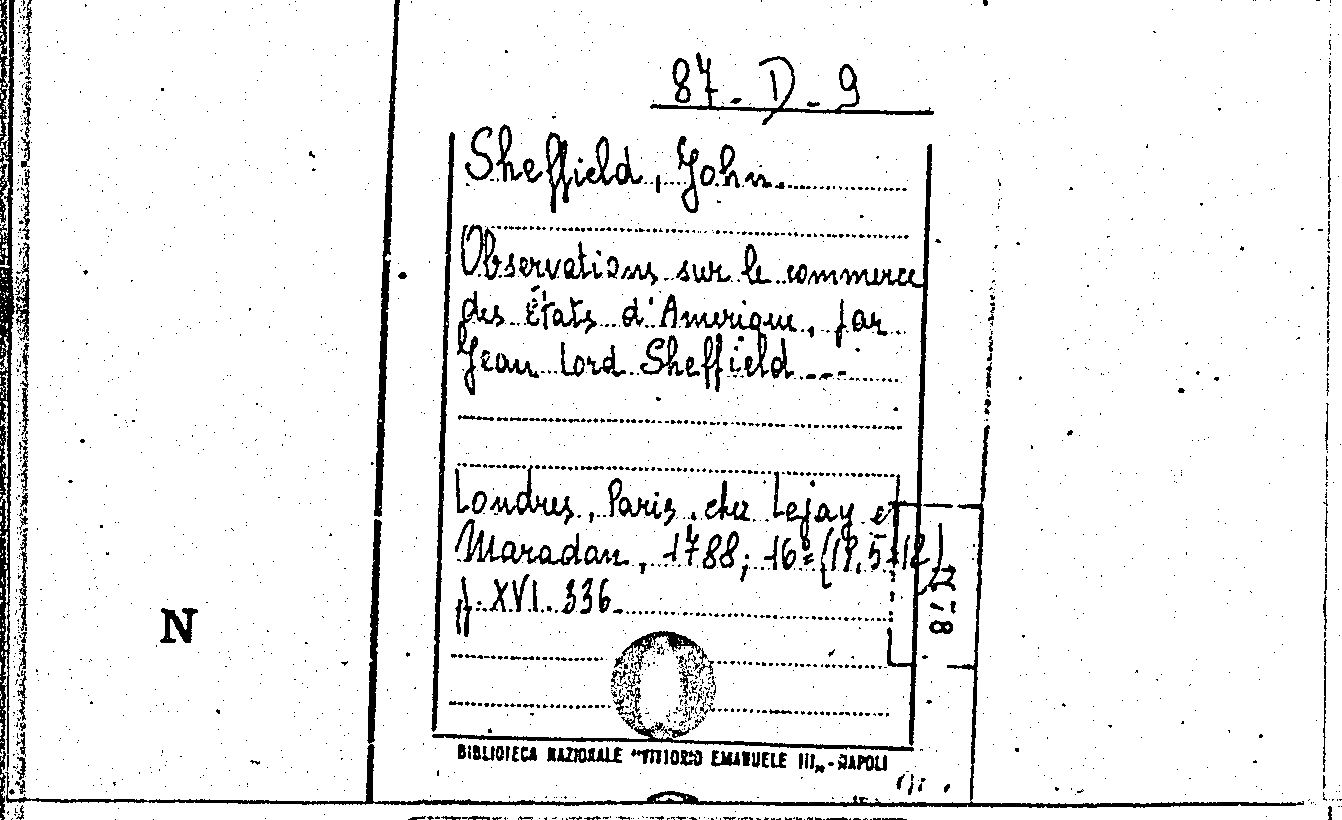 87-D-9
Sheffield, John.
Observations sur le commerce
des États d'Amerique, par
Jean lord Sheffield ---
Londres, Paris, chez Lejay et
Maradan, 1788; 16º (19,5×12)
p. XVI. 336.
N
BIBLIOTECA NAZIONALE "VITTORIO EMANUELE III„ - NAPOLI